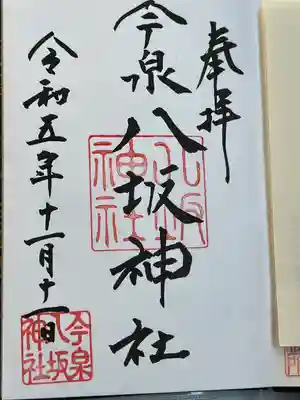 奉拝
今泉八坂神社
八坂神社
令和五年十一月十一日
今泉八坂神社